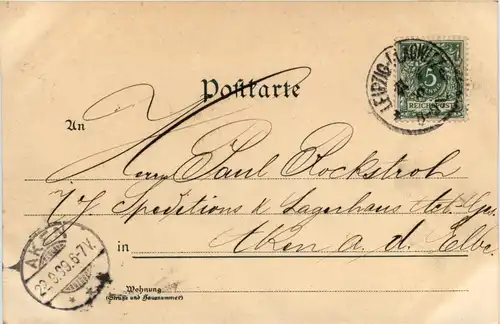 LEIPZIG-
5
REICHSPOST
Postkarte
An
Herrn Paul Rockstroh
Speditions & Lagerhaus Act. Ges.
in Aken a. d. Elbe.
AKEN
22.9.99.6-7V.
Wohnung
(Straße und Hausnummer)